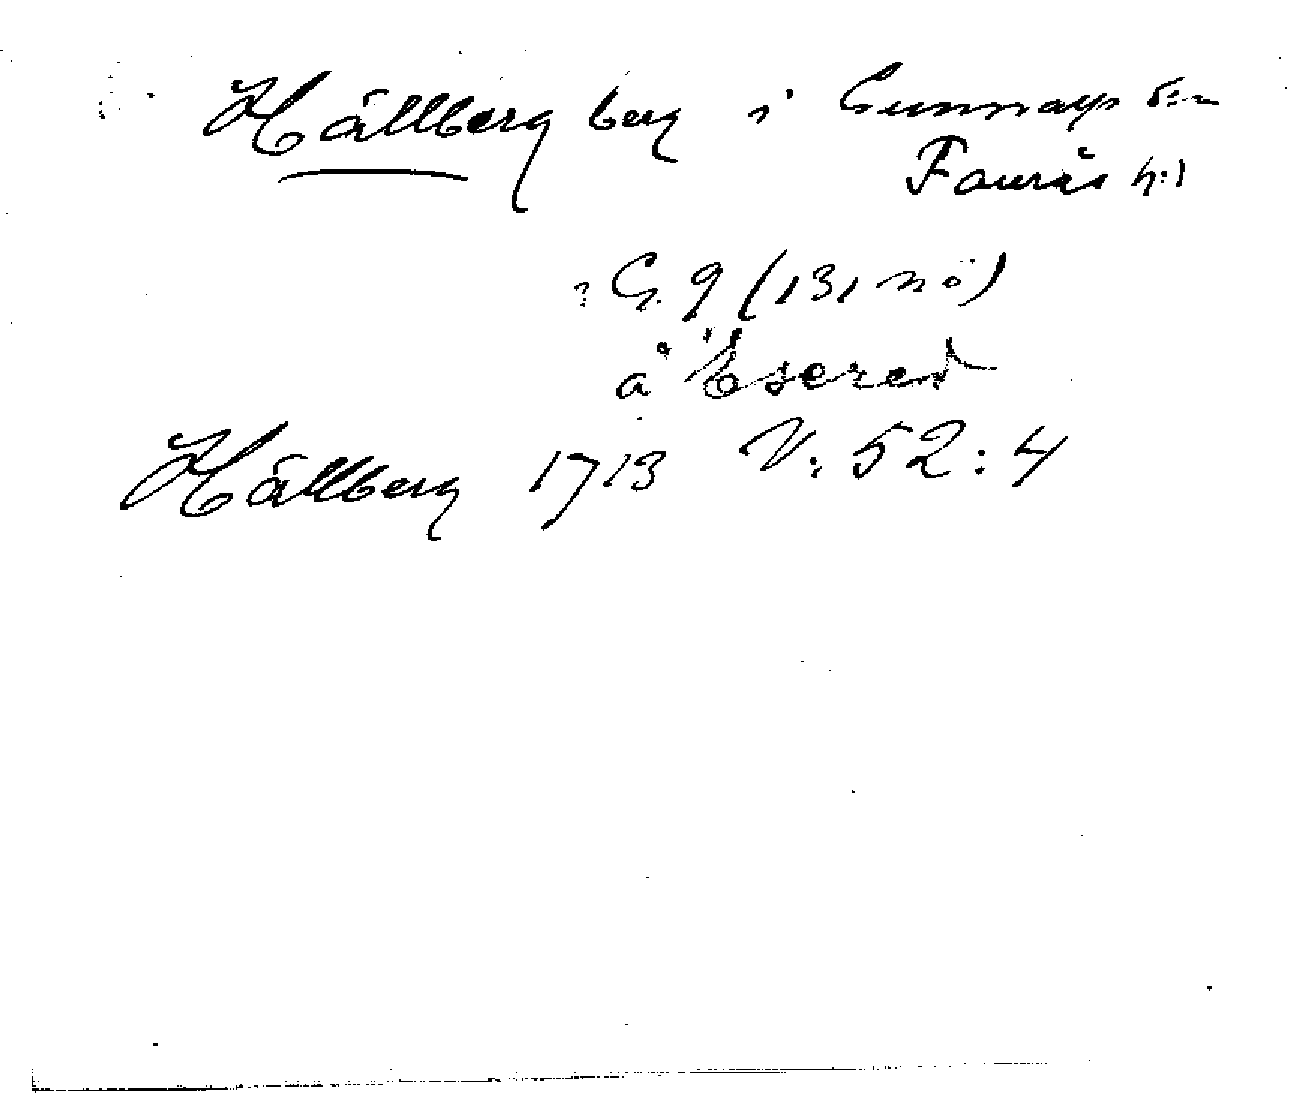 Hållberg berg i Gunnarp sn
Faurås h:d
? G. 9 (131 nö)
å Esered
Hållberg 1713 V: 52:4